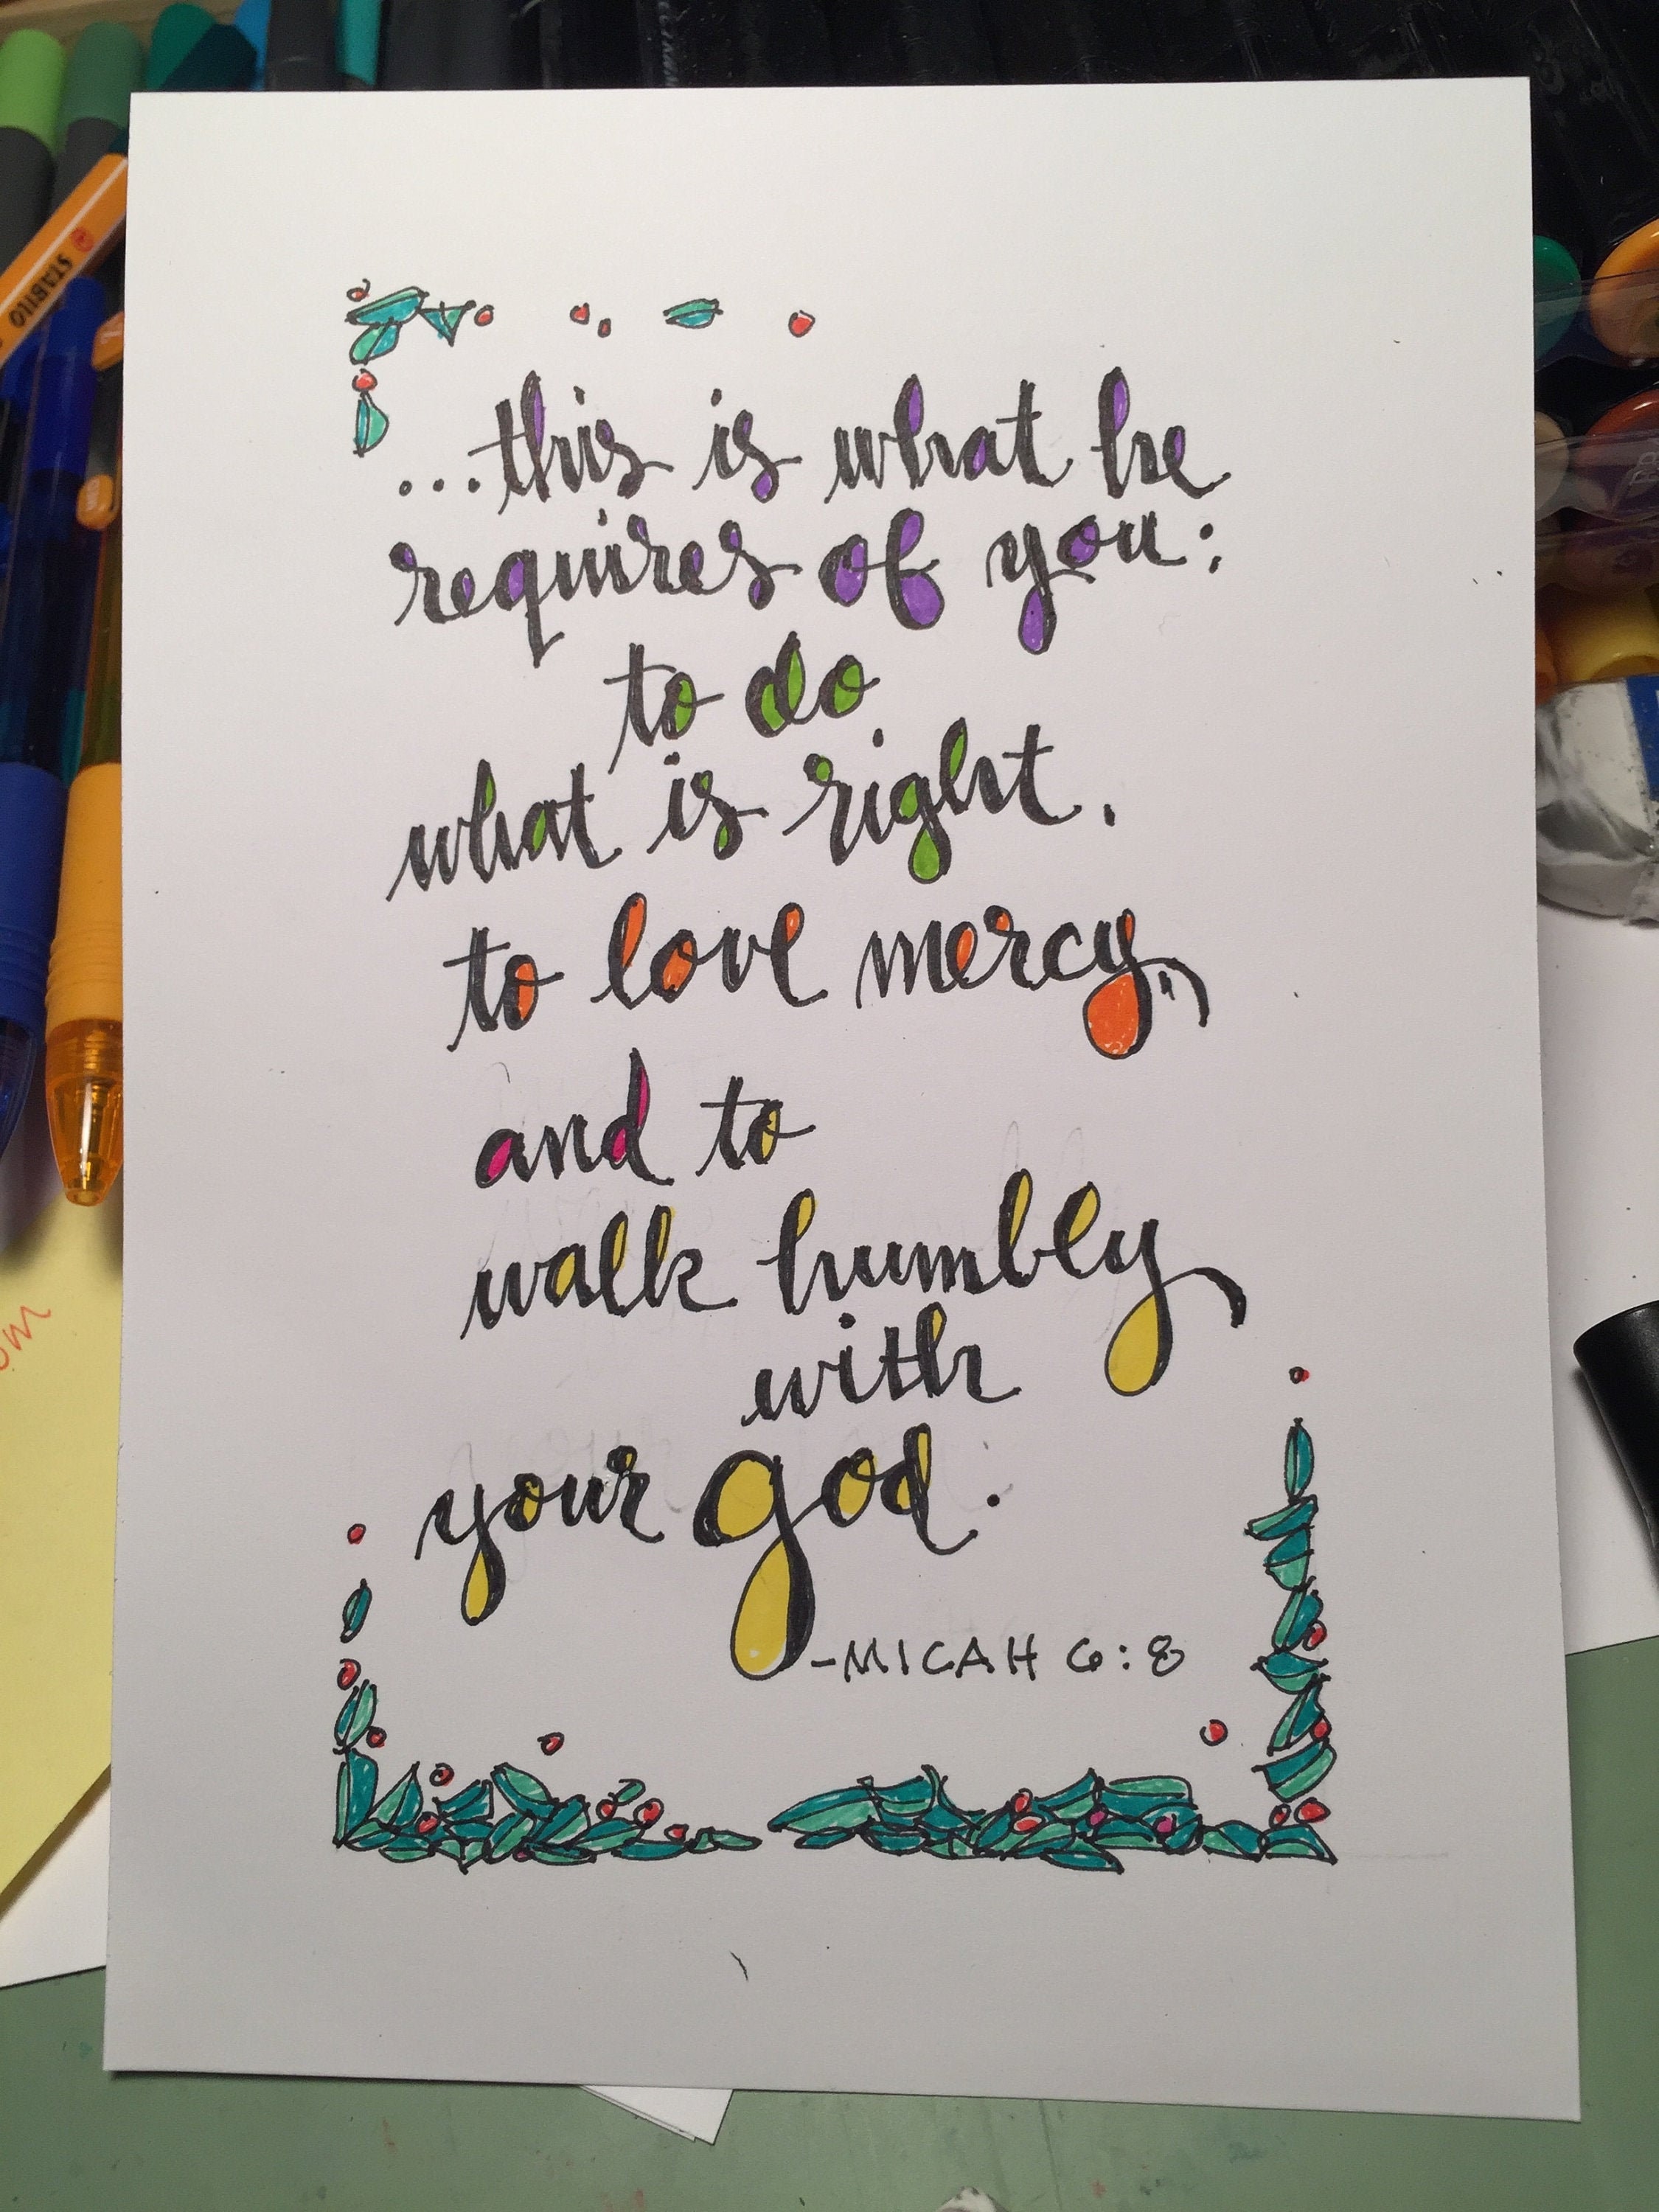 STABILO
...this is what he
requires of you:
to do
what is right,
to love mercy,
and to
walk humbly
with
your god.
-MICAH 6:8
om